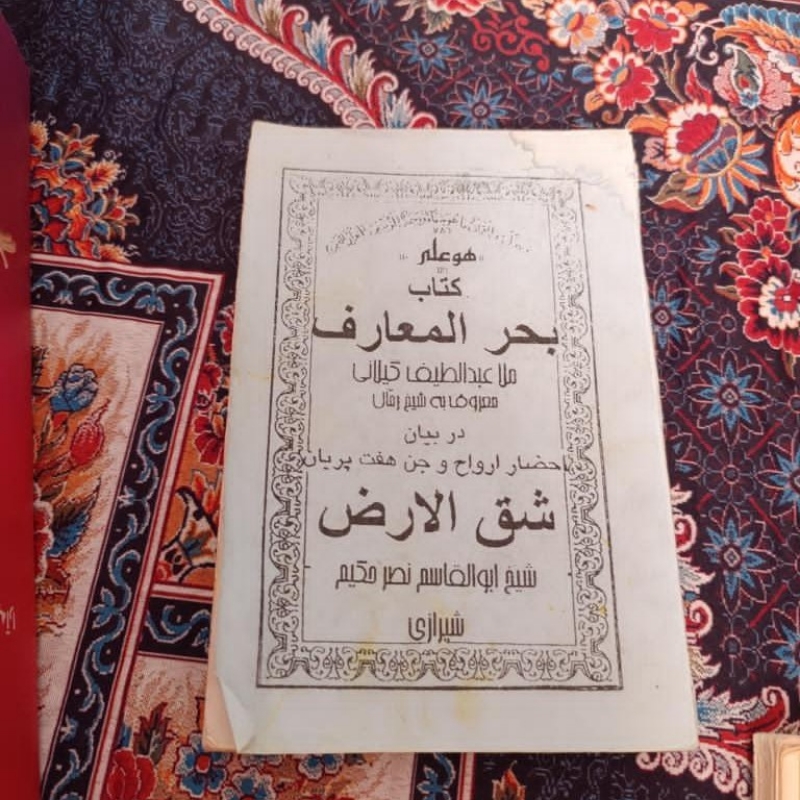 ۷۸۶
هو علی
کتاب
بحر المعارف
ملا عبدالطیف گیلانی
معروف به شیخ رمّال
در بیان
احضار ارواح و جن هفت پریان
شق الارض
شیخ ابوالقاسم نصر حکیم
شیرازی